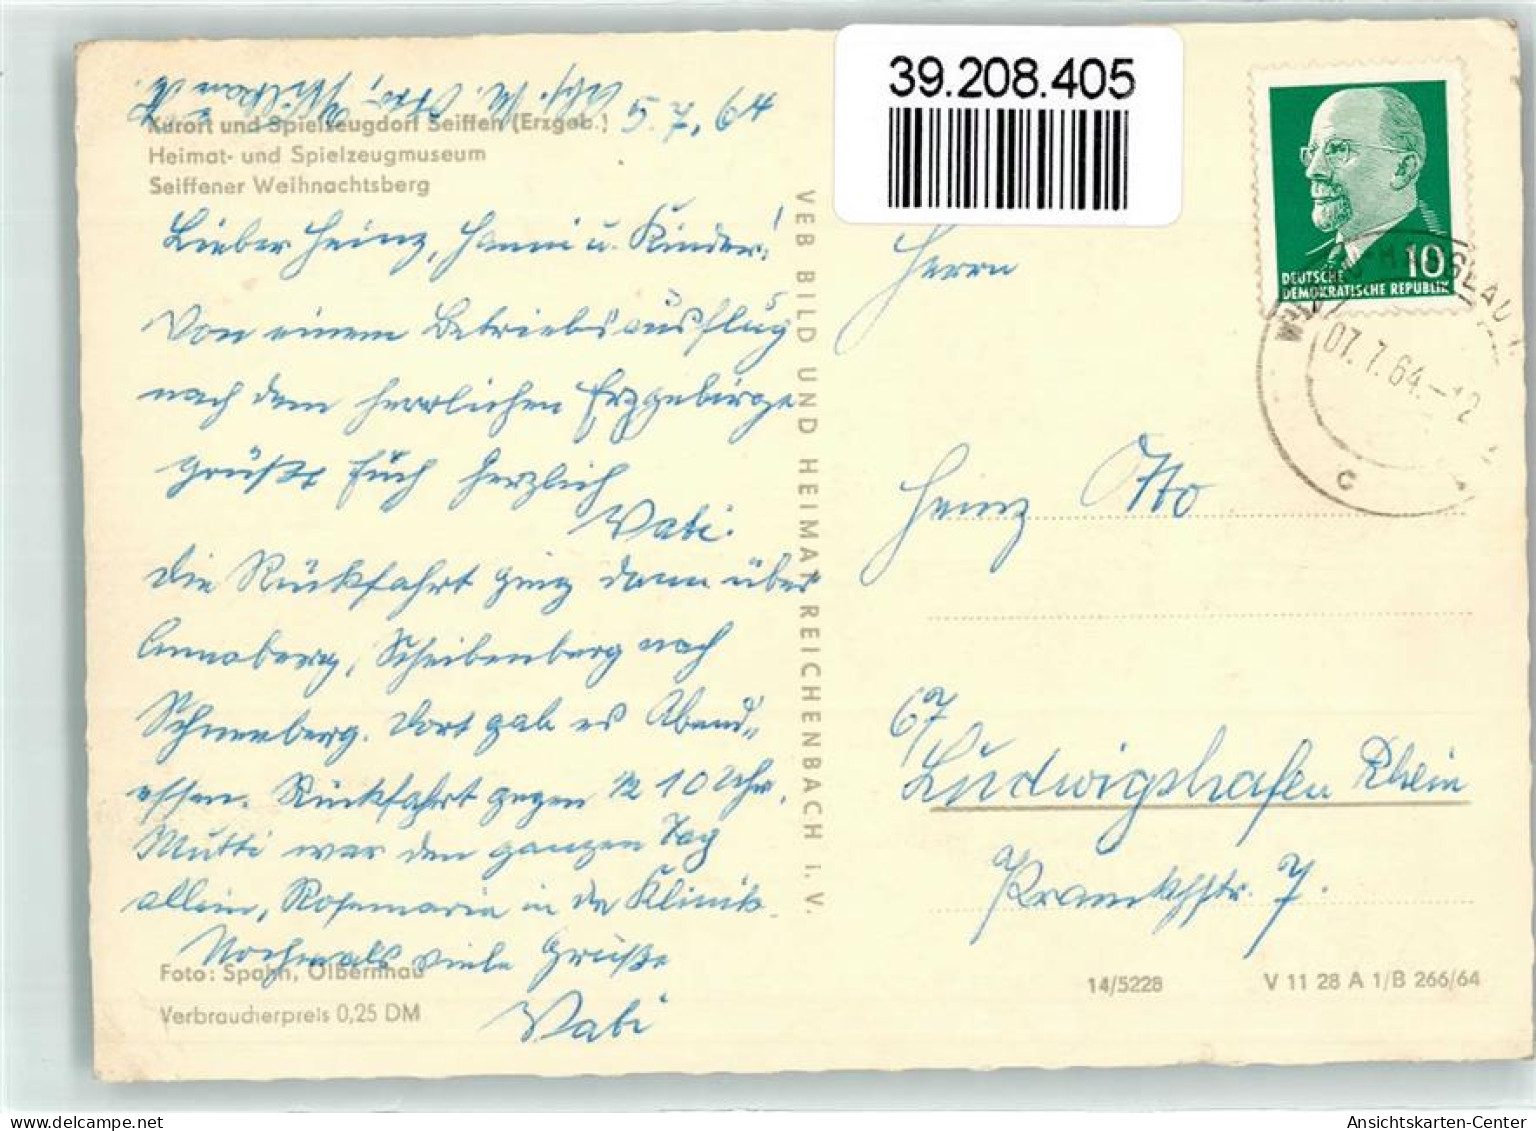 Abs. M. Otto,
5. 7. 64
Kurort und Spielzeugdorf Seiffen (Erzgeb.)
Heimat- und Spielzeugmuseum
Seiffener Weihnachtsberg
Lieber Heinz, Hanni u. Kinder!
Von einem Betriebsausflug
nach dem herrlichen Erzgebirge
grüßt Euch herzlich
Vati.
Die Rückfahrt ging dann über
Annaberg, Scheibenberg nach
Schneeberg. Dort gab es Abend-
essen. Rückfahrt gegen 1/2 10 Uhr.
Mutti war den ganzen Tag
allein, Rosemarie in der Klinik.
Nochmals viele Grüße
Vati
Foto: Spahn, Olbernhau
Verbraucherpreis 0,25 DM
VEB BILD UND HEIMAT REICHENBACH i. V.
39.208.405
10
DEUTSCHE
DEMOKRATISCHE REPUBLIK
07.7.64.-12
c
Herrn
Heinz Otto
67
Ludwigshafen Rhein
7.
14/5228
V 11 28 A 1/B 266/64
Ansichtskarten-Center